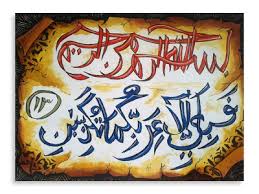 بسم الله الرحمن الرحيم
فبأي آلاء ربكما تكذبان ١٣